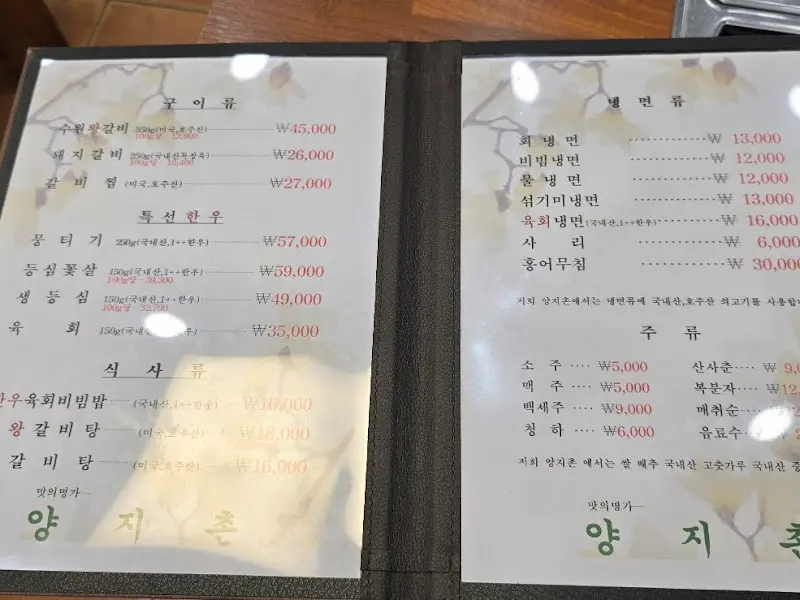 구 이 류
수원왕갈비 350g(미국,호주산) ₩45,000
100g당 - 12,900
돼지갈비 250g(국내산특창육) ₩26,000
100g당 - 10,400
갈 비 찜 (미국,호주산) ₩27,000
특선한우
뭉 터 기 250g(국내산,1++한우) ₩57,000
등심꽃살 150g(국내산,1++한우) ₩59,000
100g당 - 39,300
생 등 심 150g(국내산,1++한우) ₩49,000
100g당 - 32,700
육 회 150g(국내산,1++한우) ₩35,000
식 사 류
한우육회비빔밥 (국내산,1++한우) ₩16,000
왕갈비탕 (미국,호주산) ₩18,000
갈 비 탕 (미국,호주산) ₩16,000
맛의명가
양 지 촌
냉 면 류
회 냉 면 ₩ 13,000
비빔냉면 ₩ 12,000
물 냉 면 ₩ 12,000
섞기미냉면 ₩ 13,000
육회냉면(국내산,1++한우) ₩ 16,000
사 리 ₩ 6,000
홍어무침 ₩ 30,000
저희 양지촌에서는 냉면류에 국내산,호주산 쇠고기를
주 류
소 주 ₩5,000 산사춘 ₩
맥 주 ₩5,000 복분자 ₩
백세주 ₩9,000 매취순 ₩
청 하 ₩6,000 음료수 ₩
저희 양지촌 에서는 쌀 배추 국내산 고춧가루 국내산
맛의명가
양 지 촌